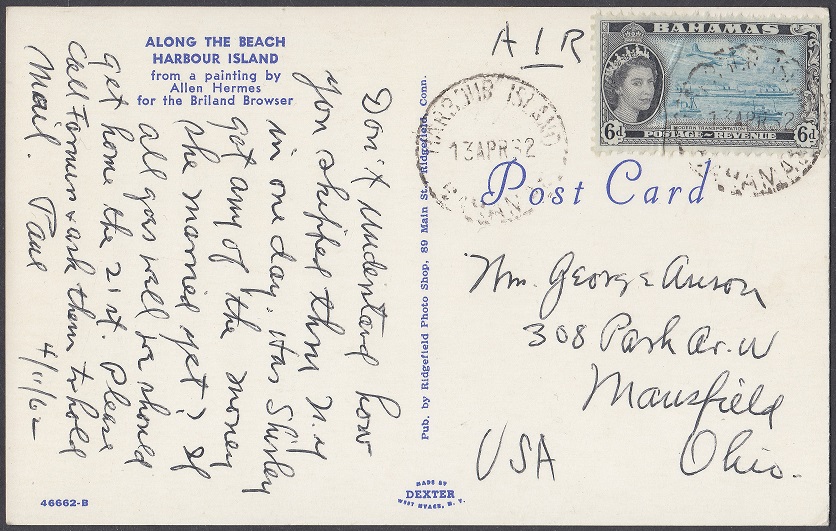 ALONG THE BEACH
HARBOUR ISLAND
from a painting by
Allen Hermes
for the Briland Browser
Don't understand how
you shipped thru N.Y
in one day. Has Shirley
got any of the money
she married yet? If
all goes well we should
get home the 21st. Please
call Farmers & ask them to hold
Mail. Paul 4/11/62
46662-B
Pub. by Ridgefield Photo Shop, 89 Main St., Ridgefield, Conn.
MADE BY
DEXTER
WEST NYACK, N. Y.
AIR
HARBOUR ISLAND
13APR62
BAHAMAS
BAHAMAS
6d
MODERN TRANSPORTATION
POSTAGE & REVENUE
6d
13APR62
BAHAMAS
Post Card
George Anson
308 Park Av. W
Mansfield
Ohio.
USA